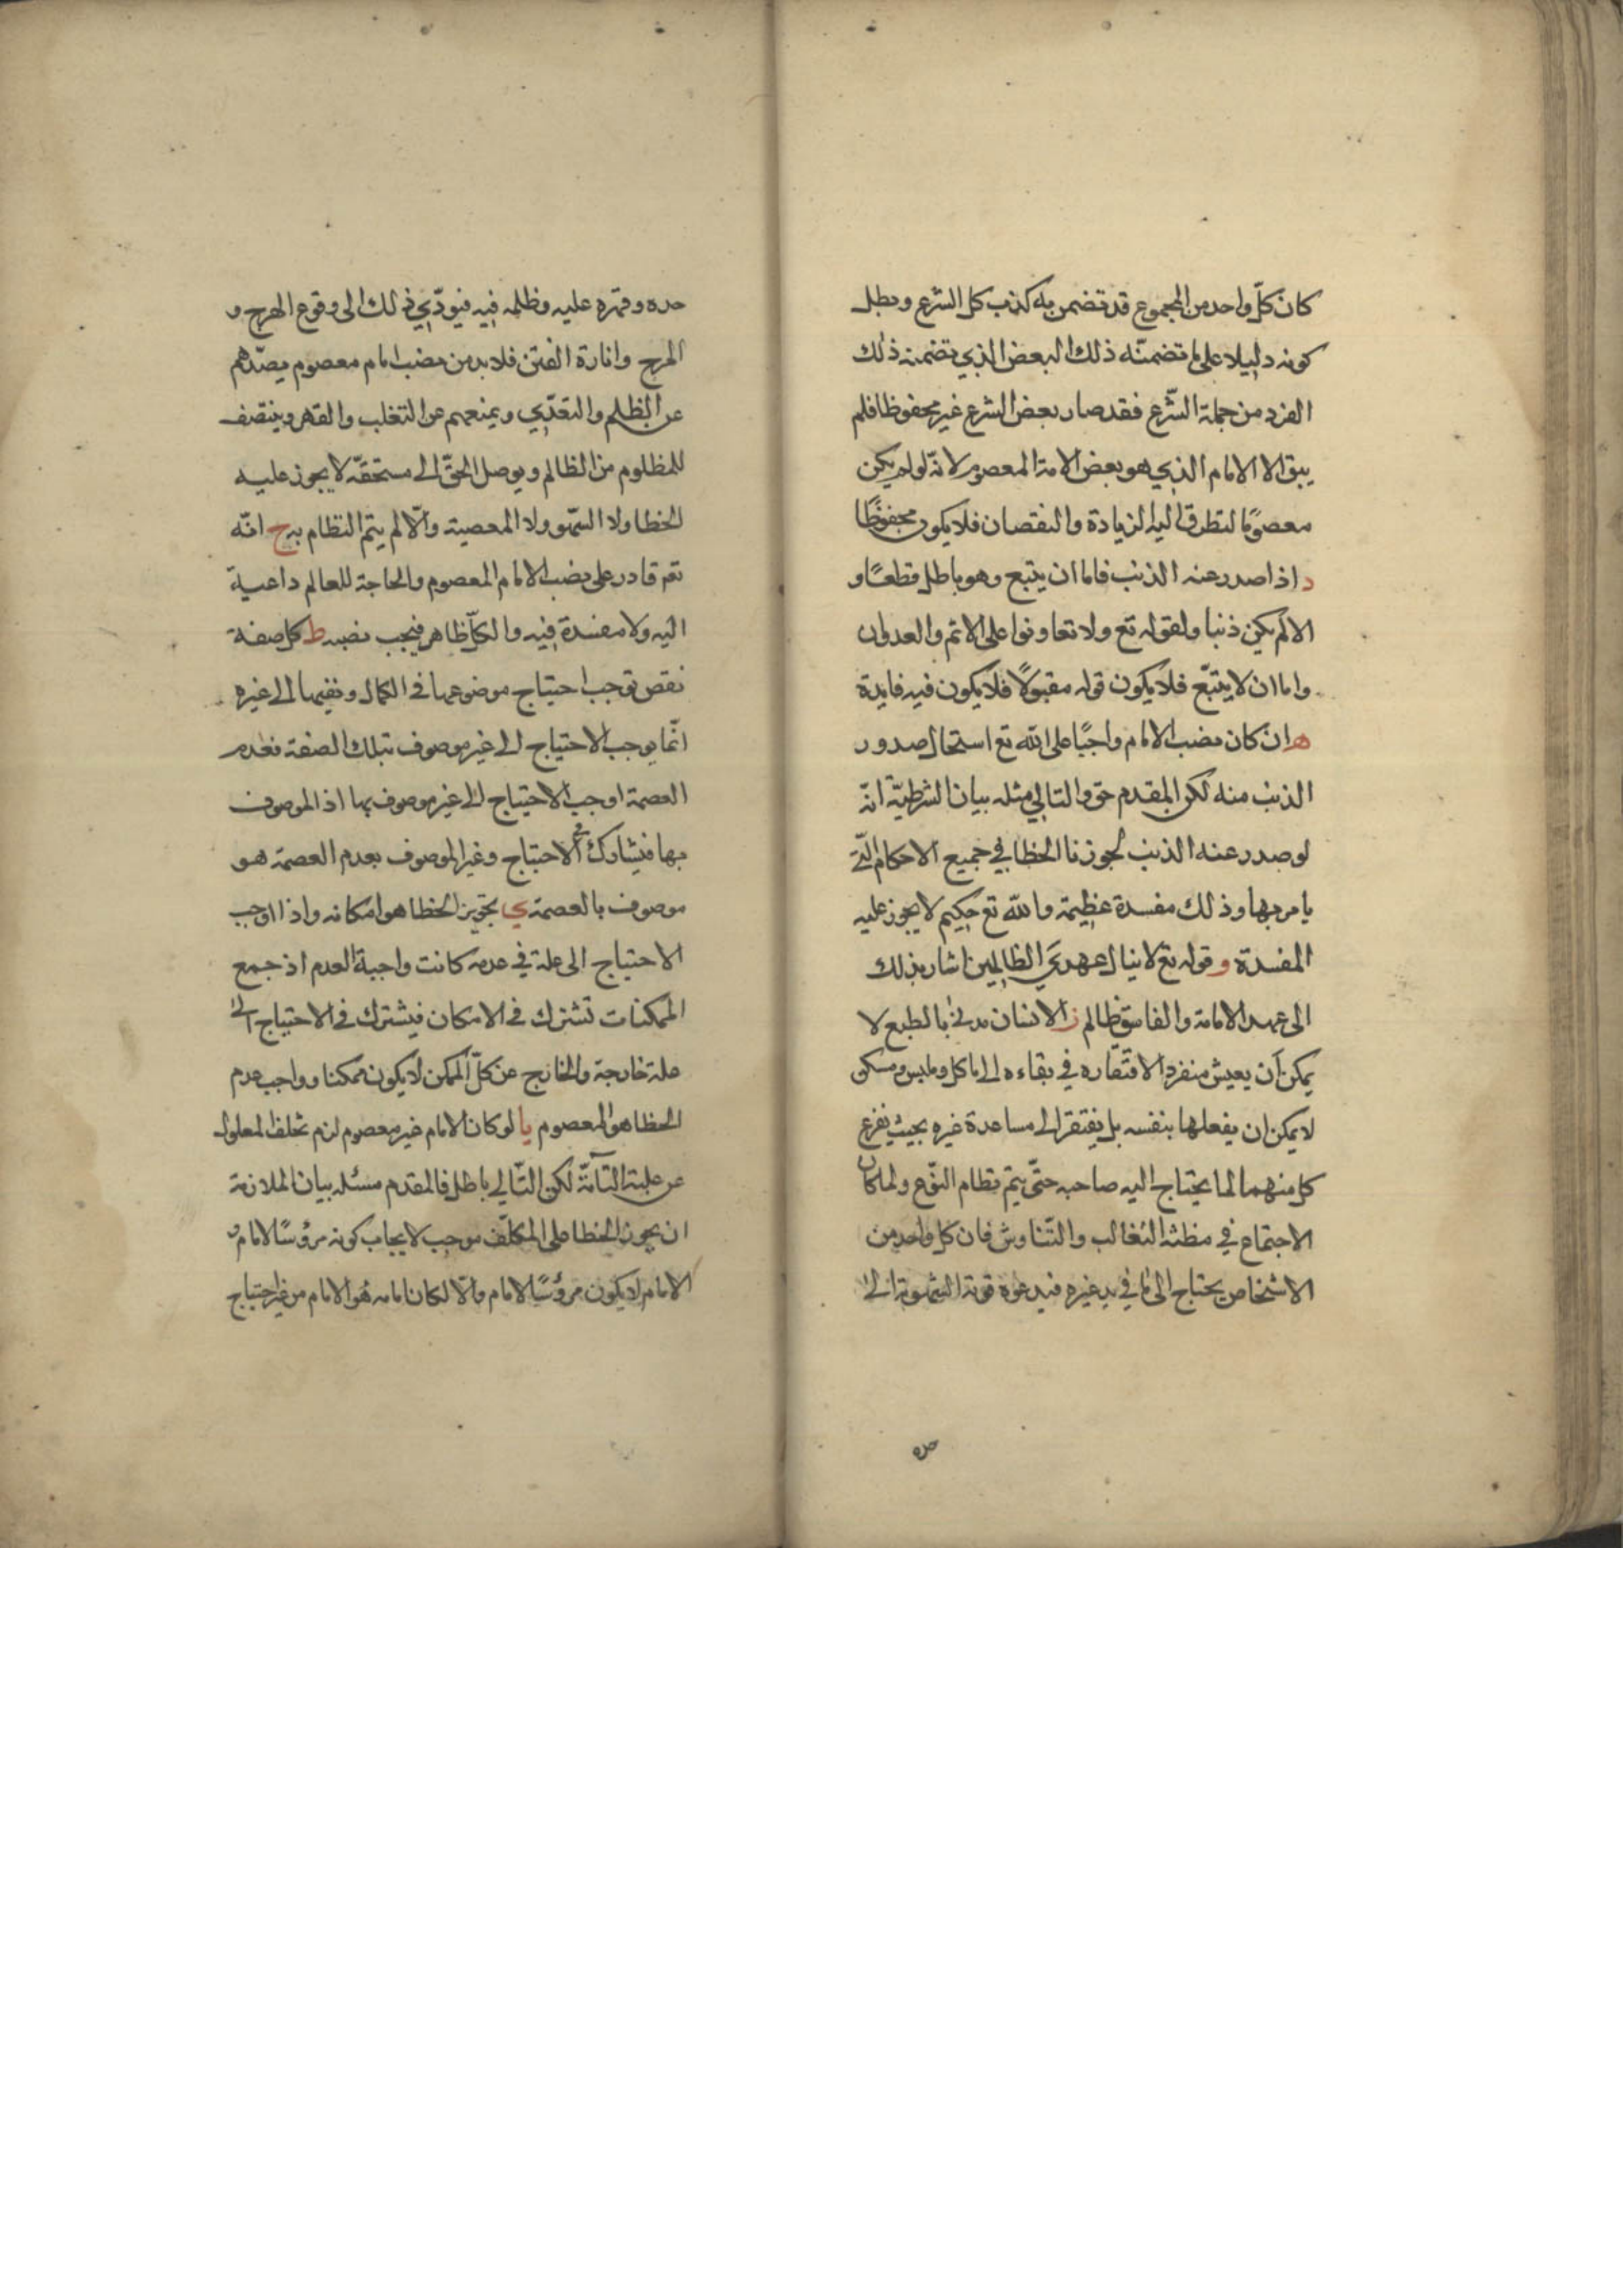 كان كلّ واحد من المجموع قد تضمن به كذب كل الشرع وبطل
كونه دليلا على ما تضمنّه ذلك البعض الذي تضمنه ذلك
الفرد من جملة الشّرع فقد صار بعض الشرع غير محفوظا فلم
يبق الا الامام الذي هو بعض الامة المعصوم لانّه لو لم يكن
معصومًا لتطرق اليه الزيادة والنقصان فلا يكون محفوظًا
د اذا صدر عنه الذنب فاما ان يتبع وهو باطل قطعًا و
الا لم يكن ذنبا ولقوله تع ولا تعاونوا على الاثم والعدوان
واما ان لا يتبّع فلا يكون قوله مقبولًا فلا يكون فيه فايدة
ه ان كان نصب الامام واجبًا على الله تع استحال صدور
الذنب منه لكن المقدم حق والتالي مثله بيان الشرطيّة انّه
لو صدر عنه الذنب لجوزنا الخطا في جميع الاحكام الّتى
يامر بها وذلك مفسدة عظيمة والله تع حكيم لا يجوز عليه
المفسدة و قوله تع لا ينال عهدي الظالمين اشار بذلك
الى عهد الامامة والفاسق ظالم ز الانسان مدنىّ بالطبع لا
يمكن ان يعيش منفردا لافتقاره في بقاءه الى ماكل وملبس ومسكن
لا يمكن ان يفعلها بنفسه بل يفتقر الى مساعدة غيره بحيث يفرغ
كل منهما لما يحتاج اليه صاحبه حتّى يتم نظام النّوع ولما كان
الاجتماع في مظنة التغالب والتّناوش فان كل واحد من
الاشخاص يحتاج الى ما في يد غيره فيدعوه قوته الشهوية الى
حده
حده وقهره عليه وظلمه فيه فيودّي ذلك الى وقوع الهرج و
المرج واثارة الفتن فلا بد من نصب امام معصوم يصدّهم
عن الظلم والتعدّي ويمنعهم عن التغلب والقهر وينتصف
للمظلوم من الظالم ويوصل الحقّ الى مستحقّه لا يجوز عليه
الخطا ولا السّهو ولا المعصية والّا لم يتم النظام به ح انّه
تع قادر على نصب الامام المعصوم والحاجة للعالم داعية
اليه ولا مفسدة فيه والكلّ ظاهر فيجب نصبه ط كل صفة
نقص توجب احتياج موضوعها في الكمال ونفيها الى غيره
انّما يوجب الاحتياج الى غير موصوف بتلك الصفة فعدم
العصمة اوجب الاحتياج الى غير موصوف بها اذ الموصوف
بها فيشارك في الاحتياج وغير الموصوف بعدم العصمة هو
موصوف بالعصمة ي تجويز الخطا هو امكانه واذا اوجب
الاحتياج الى علة في عدمه كانت واجبة العدم اذ جمع
الممكنات تشترك في الامكان فيشترك في الاحتياج الى
علة خارجة والخارج عن كلّ الممكن لا يكون ممكنا وواجب عدم
الخطا هو المعصوم يا لو كان الامام غير معصوم لزم تخلف المعلول
عن علته التامّة لكن التّالي باطل فالمقدم مثله بيان الملازمة
ان يجوز الخطا على المكلّف موجب لايجاب كونه مرؤسًا لامام و
الامام لا يكون مرؤسًا لامام والّا لكان امامه هو الامام من غير احتياج